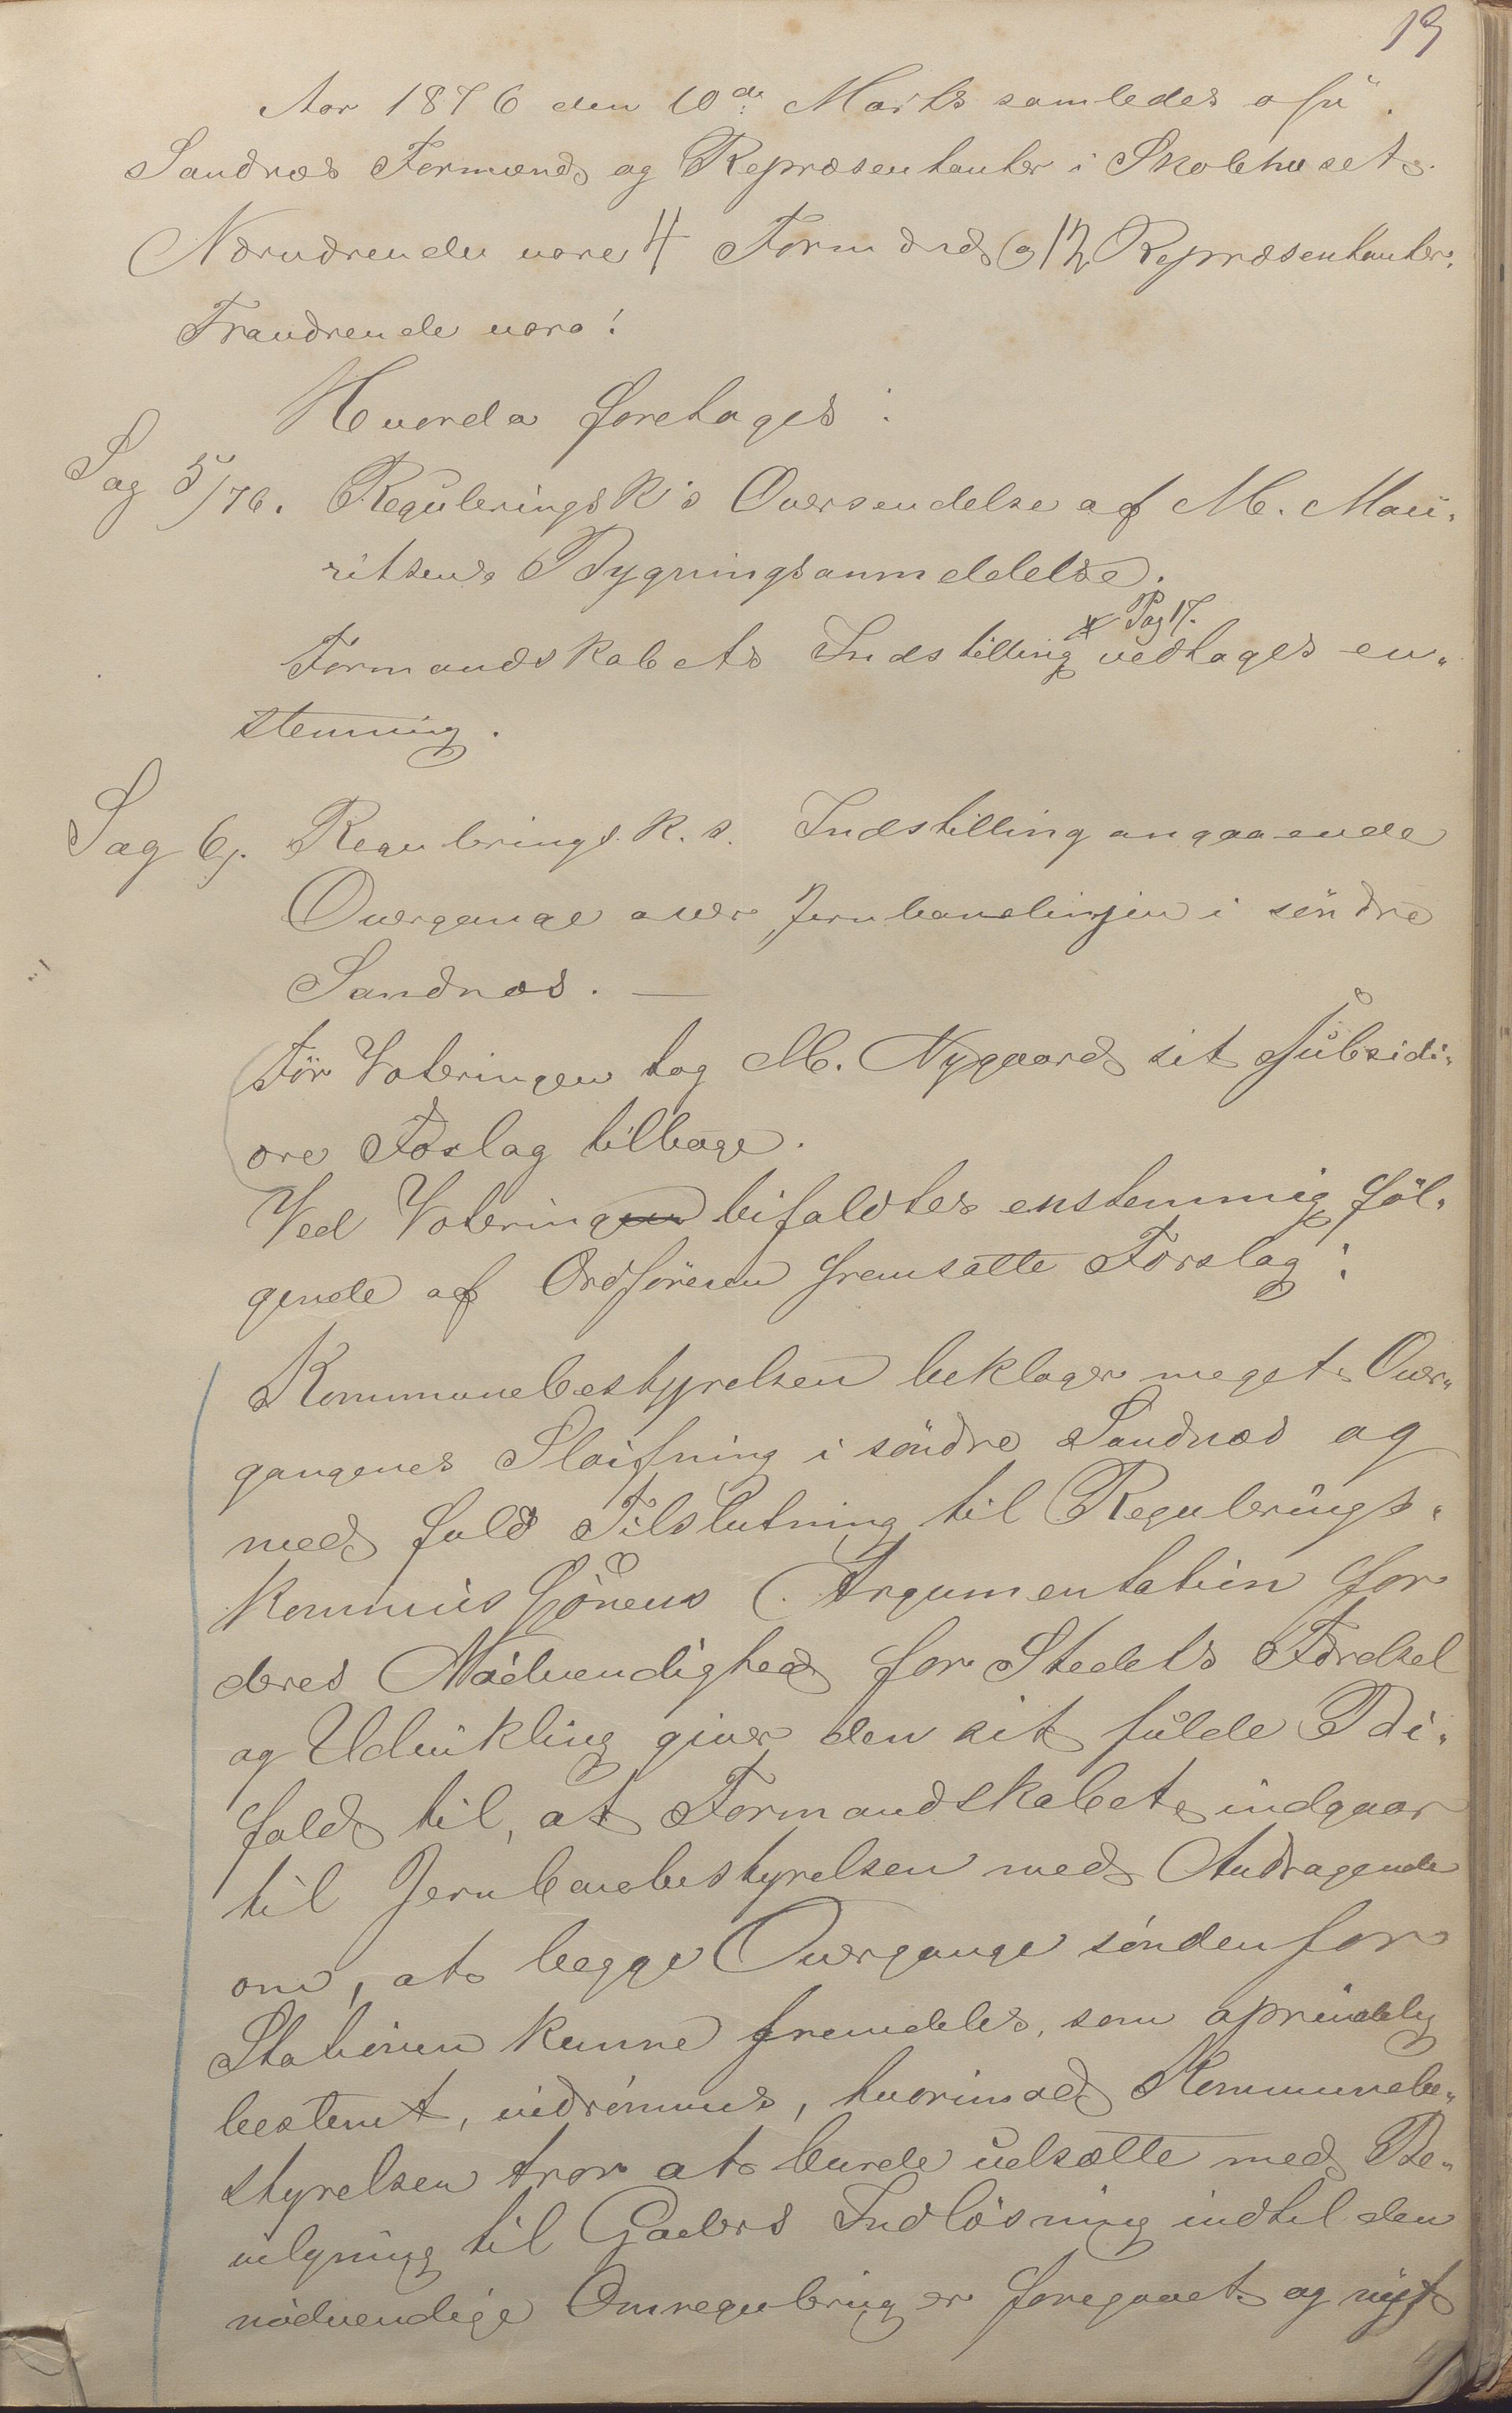 19
Aar 1876 den 10de Marts samledes
Sandnæs Formænd og Repræsentanter i Skolehuset.
Nærværende vare 4 Formænd og 12 Repræsentanter.
Fraværende vare:
Hvorda foretages:
Sag 5/76. Regulerings K's Oversendelse af M. Mau-
ritsens Bygningsanmeldelse.
Pag 17.
Formandskabets Indstilling vedtages en-
stemmig.
Sag 6/. Regulerings. K. s. Indstilling angaaende
Overgange over Jernbanelinjen i söndre
Sandnæs. —
Før Voteringen tog M. Nygaard sit Subsidi-
ære Forslag tilbage.
Ved Voteringen bifaldtes enstemmig föl-
gende af Ordföreren fremsatte Forslag:
Kommunebestyrelsen beklager meget Over-
gangenes Sløifning i söndre Sandnæs og
med fuld Tilslutning til Regulerings-
kommissjönens Argumentation for
deres Nødvendighed for Stedets Færdsel
og Udvikling giver den sit fulde Bi-
fald til, at Formandskabet indgaar
til Jernbanebestyrelsen med Andragende
om, at begge Overgange söndenfor
Stationen kunne fremdeles, som oprindelig
bestemt, indrömmes, hvorimod Kommunebe-
styrelsen tror at burde udsætte med Be-
vilgning til Gaders Indløsning indtil den
nödvendige Omregulering er foregaaet og nyt